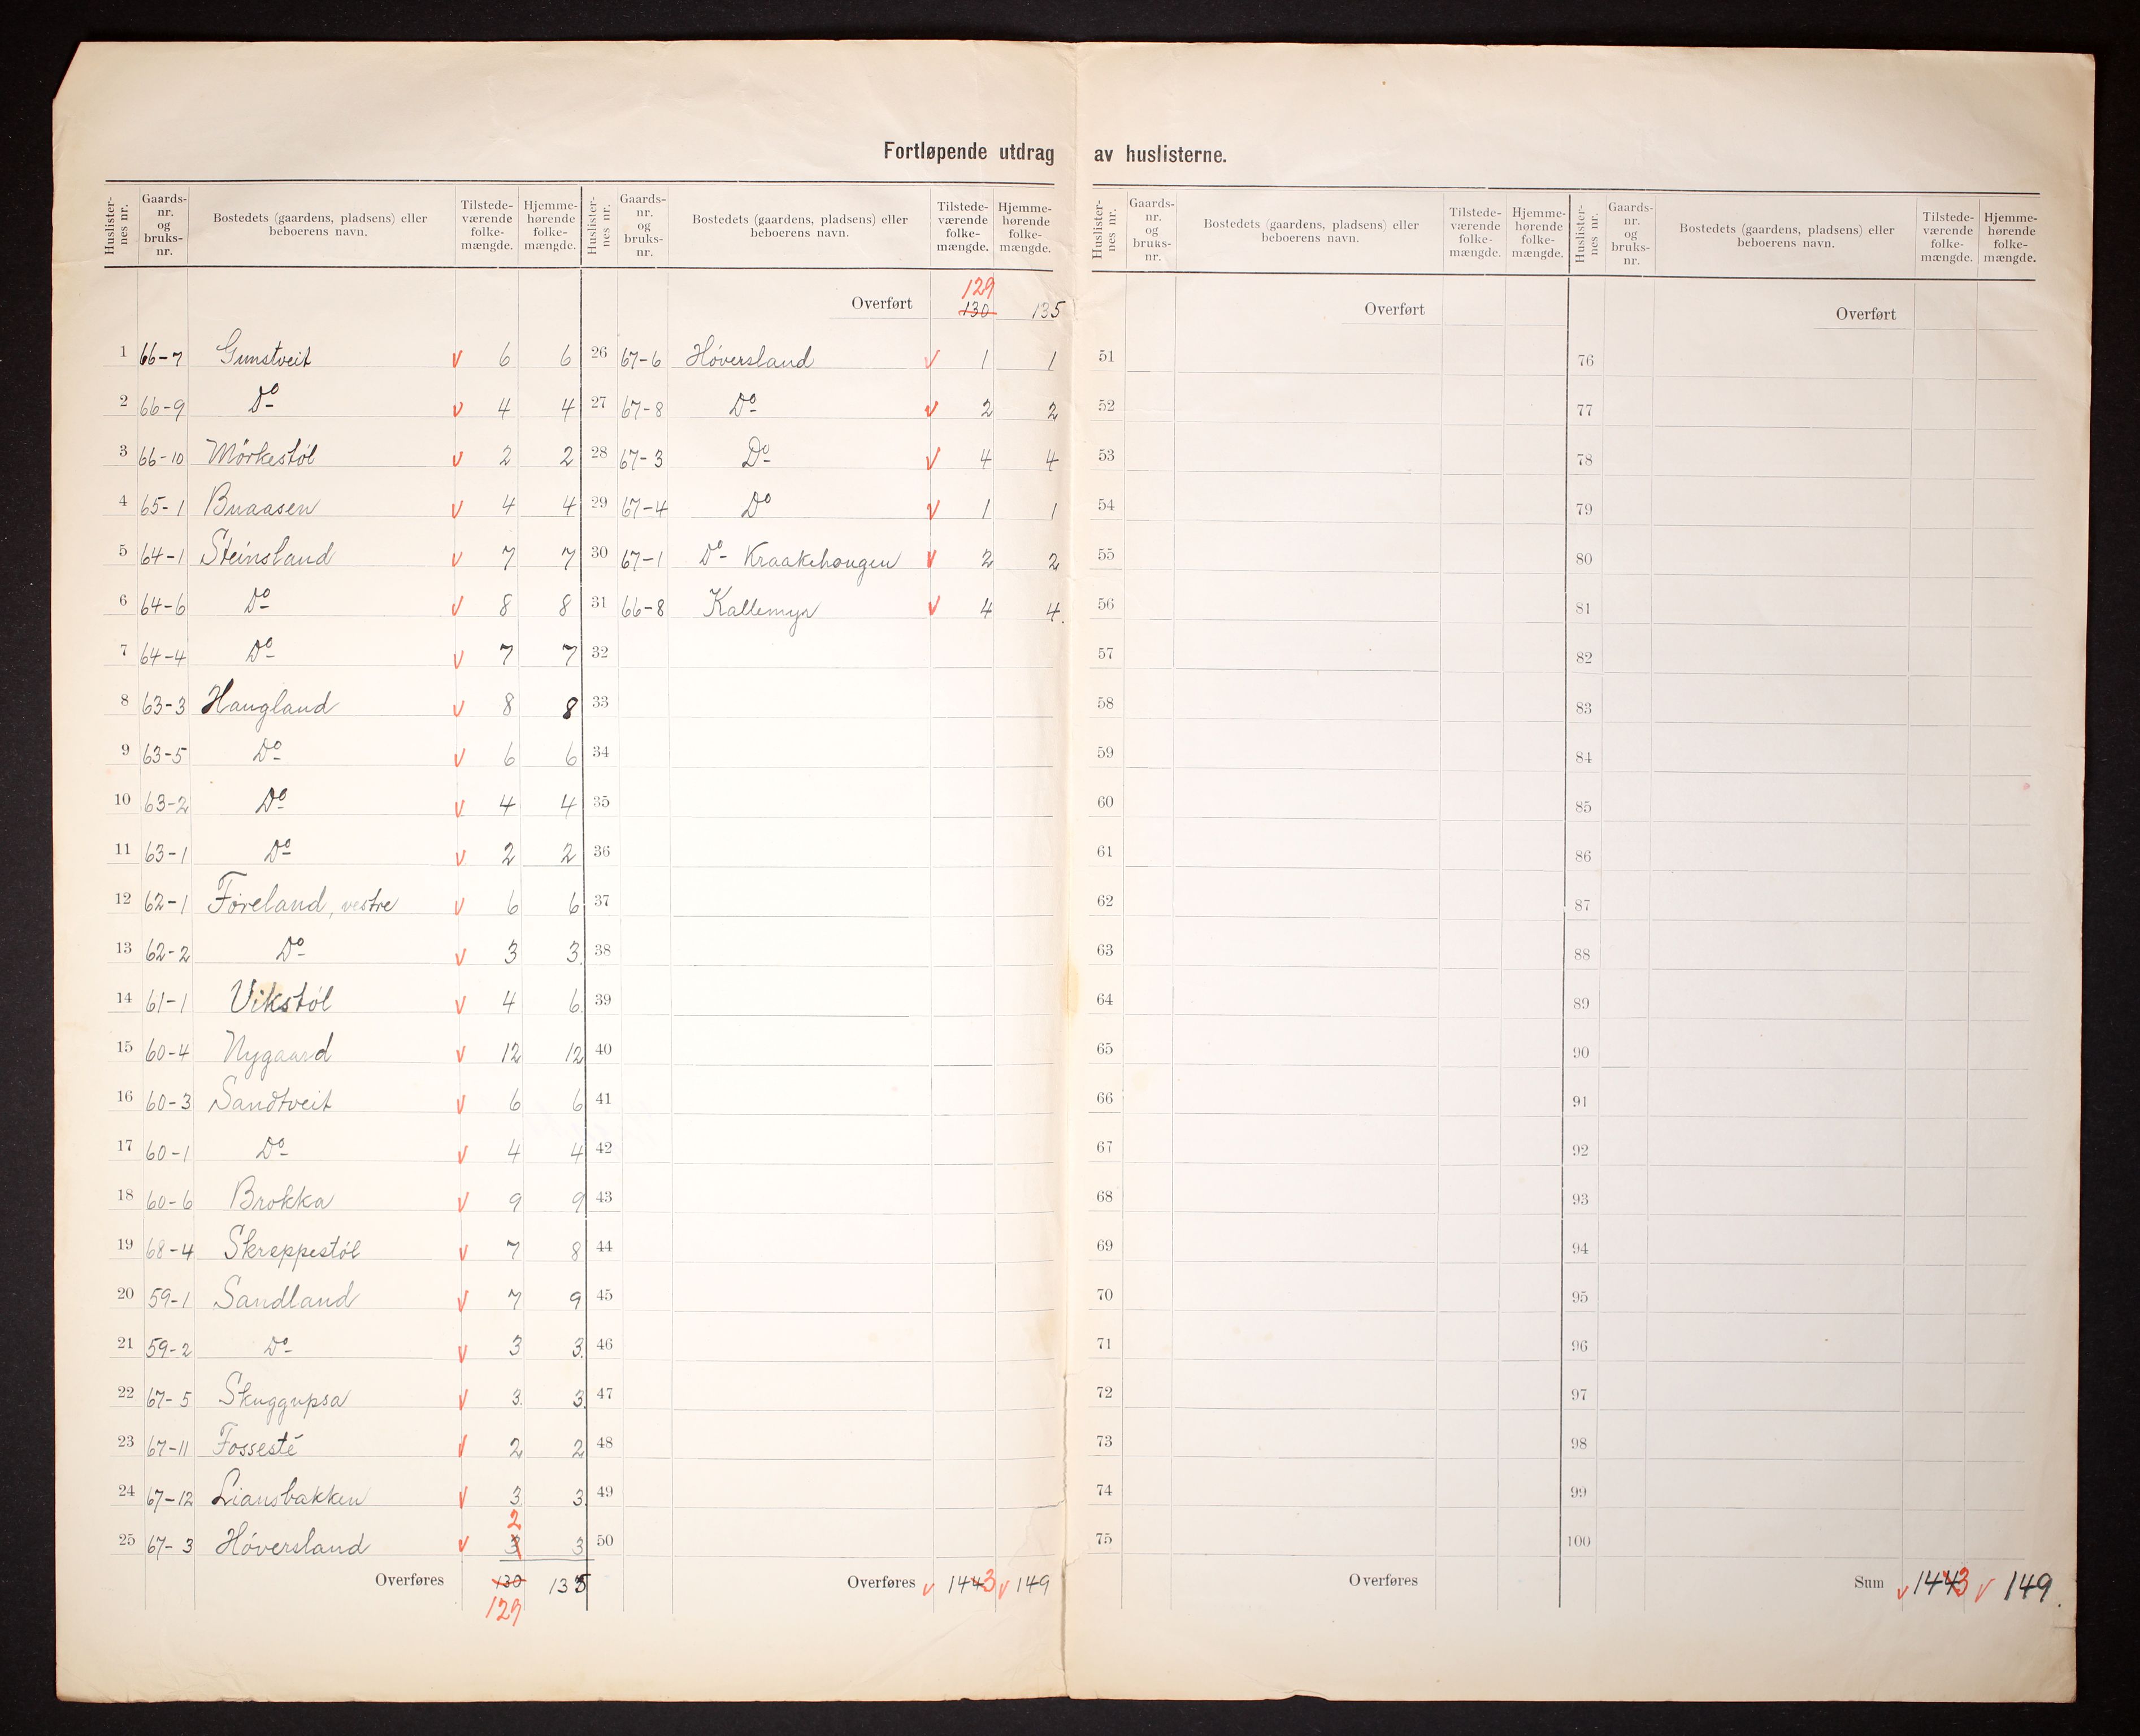 Fortløpende utdrag av huslisterne.
Huslisternes nr. Gaardsnr. og bruksnr. Bostedets (gaardens, pladsens) eller beboerens navn. Tilstedeværende folkemængde. Hjemmehørende folkemængde.
1 66-7 Gunstveit v 6 6
2 66-9 Do v 4 4
3 66-10 Mörkestöl v 2 2
4 65-1 Buaasen v 4 4
5 64-1 Steinsland v 7 7
6 64-6 Do v 8 8
7 64-4 Do v 7 7
8 63-3 Haugland v 8 8
9 63-5 Do v 6 6
10 63-2 Do v 4 4
11 63-1 Do v 2 2
12 62-1 Föreland, vestre v 6 6
13 62-2 Do v 3 3.
14 61-1 Vikstöl v 4 6
15 60-4 Nygaard v 12 12
16 60-3 Sandtveit v 6 6
17 60-1 Do v 4 4
18 60-6 Brokka v 9 9
19 68-4 Skreppestöl v 7 8
20 59-1 Sandland v 7 9
21 59-2 Do v 3 3.
22 67-5 Skuggupsa v 3. 3.
23 67-11 Fossesté v 2 2
24 67-12 Liansbakken v 3 3.
2
25 67-3 Höversland v 3 3
Overføres 130 135
129
Huslisternes nr. Gaardsnr. og bruksnr. Bostedets (gaardens, pladsens) eller beboerens navn. Tilstedeværende folkemængde. Hjemmehørende folkemængde.
129
Overført 130 135
26 67-6 Höversland v 1 1
27 67-8 Do v 2 2
28 67-3 Do v 4 4
29 67-4 Do v 1 1
30 67-1 Do Kraakehaugen v 2 2
31 66-8 Kallemyr v 4 4.
32
33
34
35
36
37
38
39
40
41
42
43
44
45
46
47
48
49
50
Overføres v 1443 v 149
Huslisternes nr. Gaardsnr. og bruksnr. Bostedets (gaardens, pladsens) eller beboerens navn. Tilstedeværende folkemængde. Hjemmehørende folkemængde.
Overført
51
52
53
54
55
56
57
58
59
60
61
62
63
64
65
66
67
68
69
70
71
72
73
74
75
Overføres
Huslisternes nr. Gaardsnr. og bruksnr. Bostedets (gaardens, pladsens) eller beboerens navn. Tilstedeværende folkemængde. Hjemmehørende folkemængde.
Overført
76
77
78
79
80
81
82
83
84
85
86
87
88
89
90
91
92
93
94
95
96
97
98
99
100
Sum v 1443 v 149.